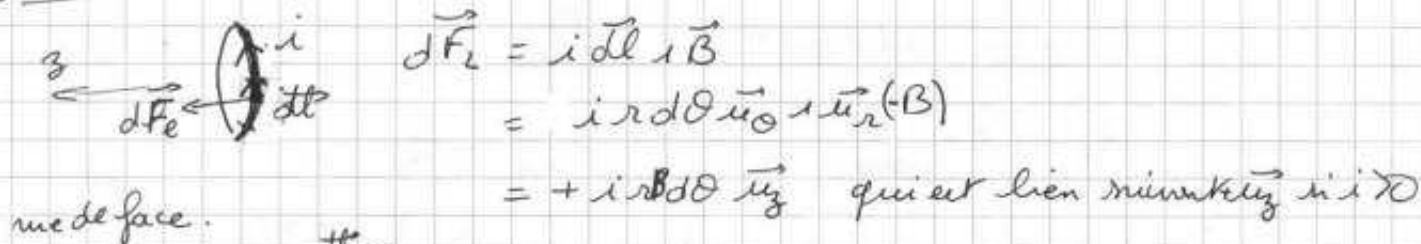 z i dF⃗e dl⃗
dF⃗L = i dl⃗ ∧ B⃗
= i r dθ u⃗θ ∧ u⃗r (-B)
= + i r B dθ u⃗z qui est bien suivant +u⃗z si i > 0
vue de face.